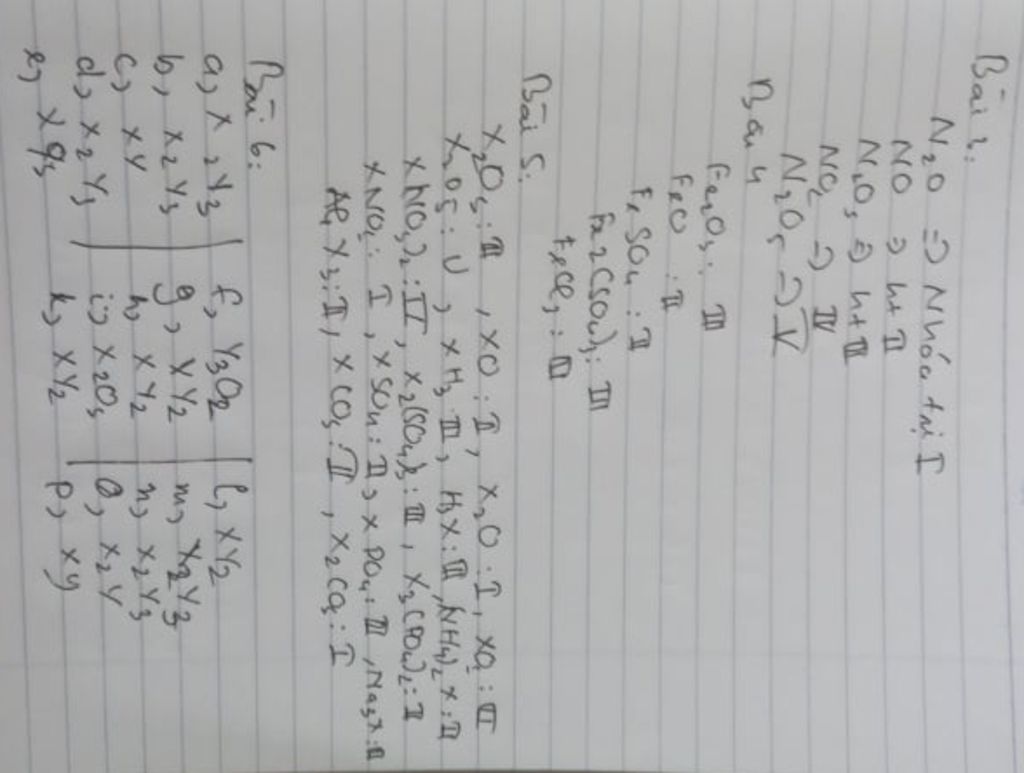 Bài 2:
N₂O => N hóa trị I
NO => h+ II
N₂O₃ => h+ III
NO₂ => IV
N₂O₅ => V
Bài 4
Fe₂O₃: III
FeO : II
FeSO₄ : II
Fe₂(SO₄)₃: III
FeCl₃ : III
Bài 5:
X₂O₃: III, XO: II, X₂O: I, XO₂: IV
X₂O₅: V, XH₃: III, H₃X: III, (NH₄)₂X: II
X(NO₃)₂: II, X₂(SO₄)₃: III, X₃(PO₄)₂: II
XNO₃: I, XSO₄: II, XPO₄: III, Na₃X: III
Al₂X₃: II, XCO₃: II, X₂CO₃: I
Bài 6:
a, X₂Y₃ | f, Y₃O₂ | l, XY₂
b, X₂Y₃ g, XY₂ m, X₂Y₃
c, XY h, XY₂ n, X₂Y₃
d, X₂Y₃ i, X₂O₃ o, X₂Y
e, k, XY₂ p, XY